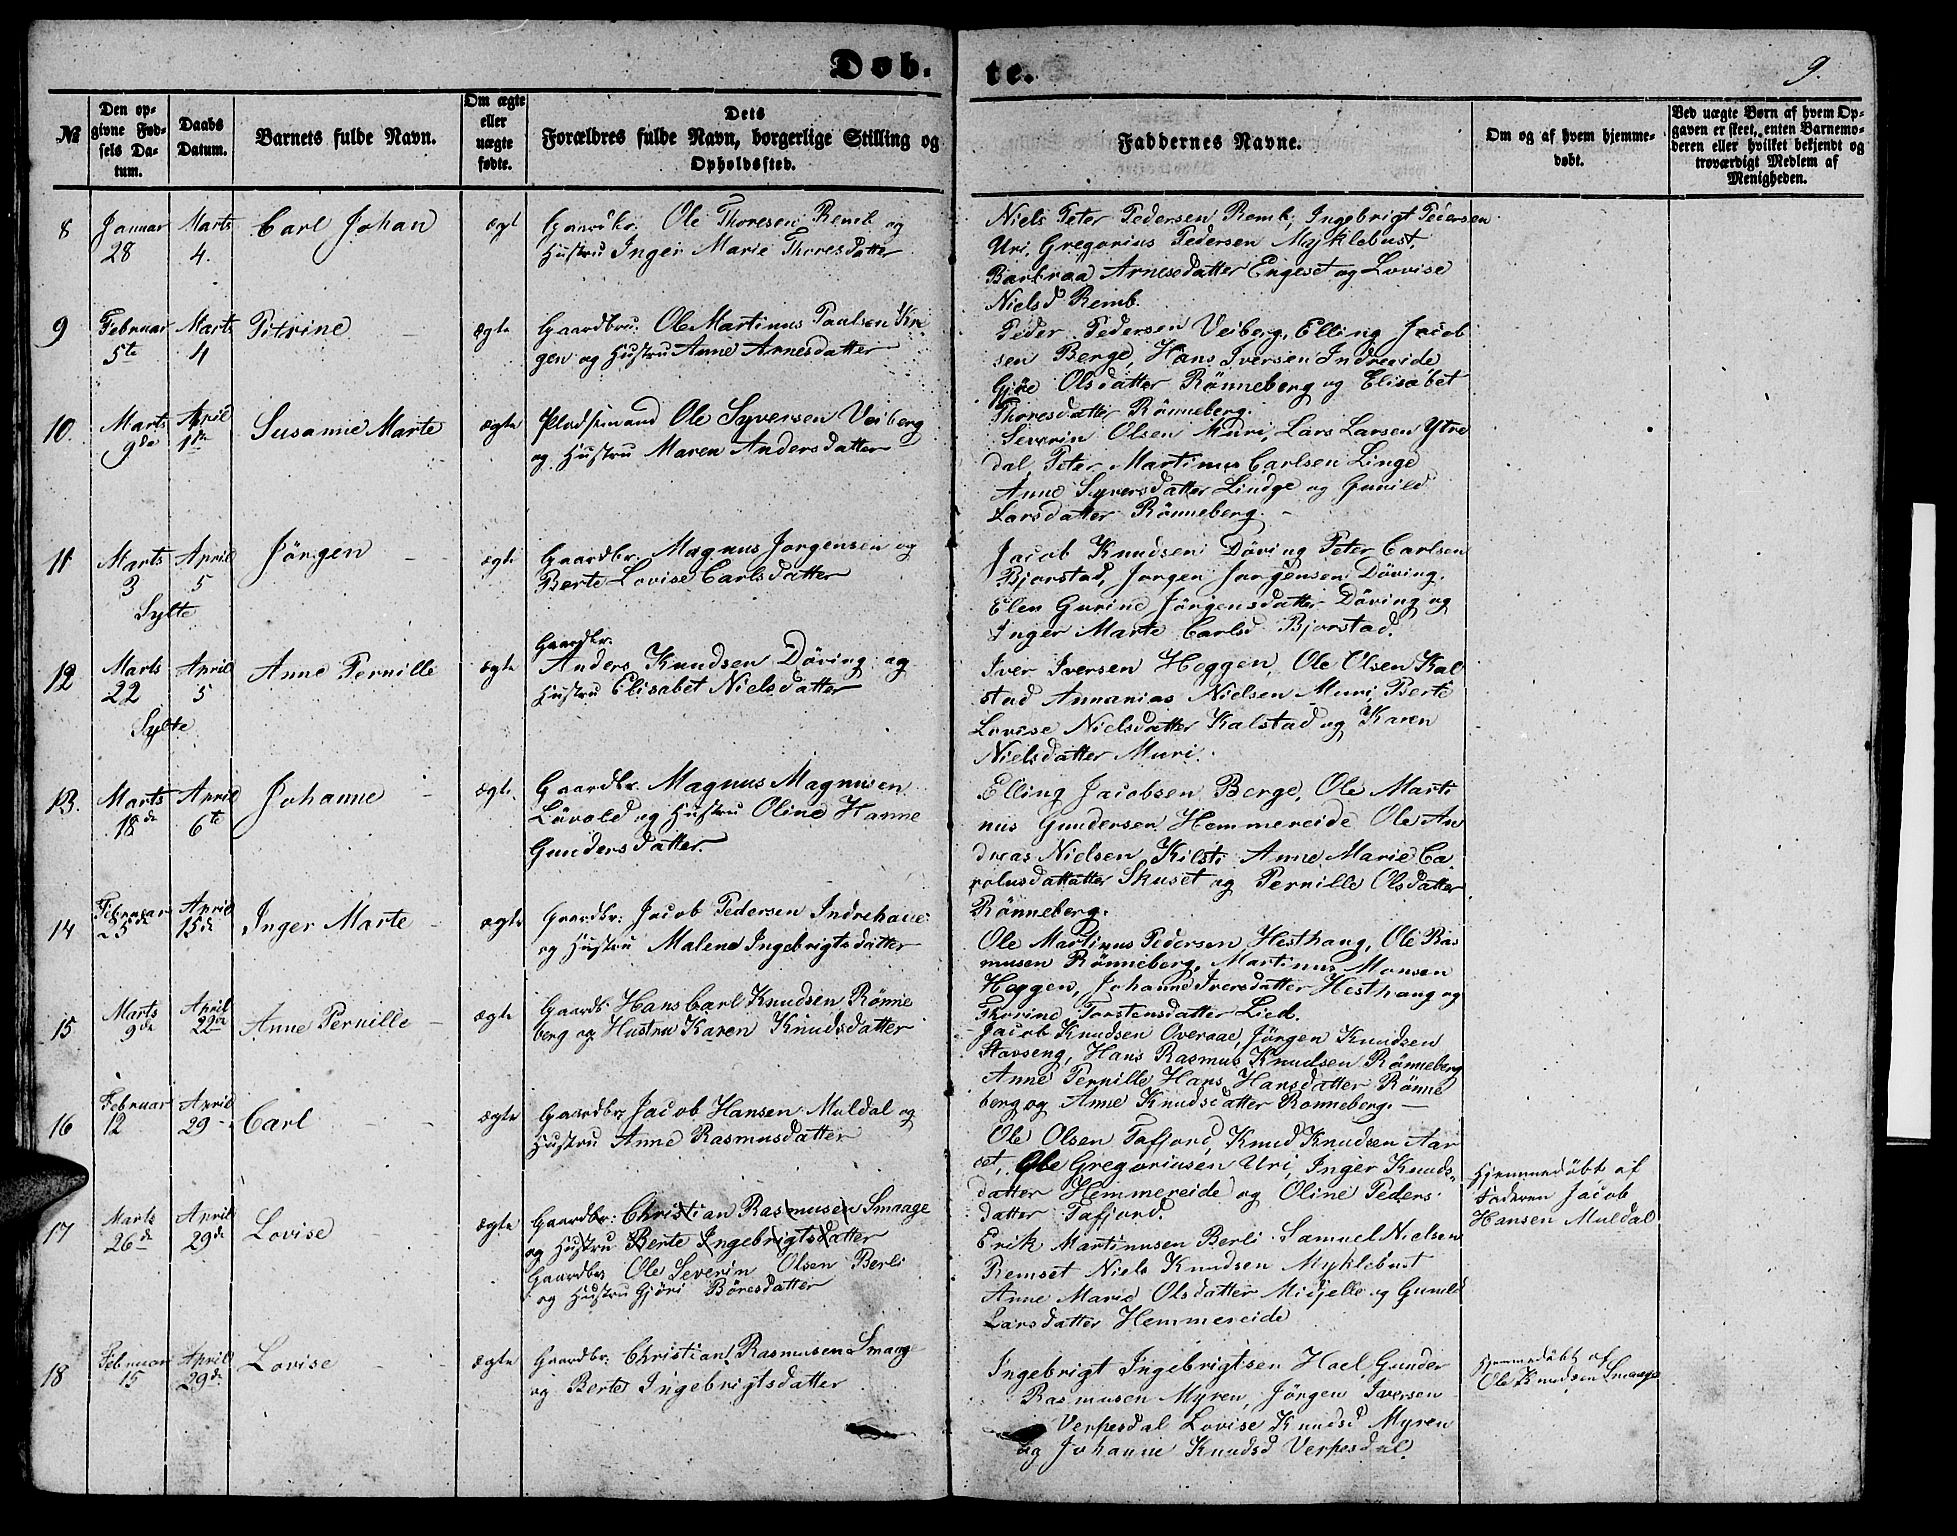 Døb.
te.
9.
№
Den op-
givne Fød-
sels Da-
tum.
Daabs
Datum.
Barnets fulde Navn.
Om ægte
eller
uægte
fødte.
Dets
Forældres fulde Navn, borgerlige Stilling og
Opholdssted.
Faddernes Navne.
Om og af hvem hjemme-
døbt.
Ved uægte Børn af hvem Op-
gaven er skeet, enten Barnemo-
deren eller hvilket bekjendt og
troværdigt Medlem af
Menigheden.
8
Januar
28
Marts
4.
Carl Johan
ægt
Gaardbr. Ole Thoresen Remb og
Hustru Inger Marie Thoresdatter
Niels Peter Pedersen Remb, Ingebrigt Pedersen
Uri, Gregorius Pedersen Myklebust,
Barbraa Arnesdatter Engeset og Lovise
Nielsd Remb.
9
Februar
5te
Marts
4
Pitrine
ægte
Gaardbru. Ole Martinus Paulsen
gen og Hustru Anne Arnesdatter
Peder Pedersen Veiberg, Elling Jacob
sen Berge, Hans Iversen Indreeide
Gjøe Olsdatter Rønneberg og Elisabet
Thoresdatter Rønneberg.
10.
Marts
9de
April
1ste
Susanne Marte
ægte
Pladsmand Ole Syversen Veiberg
og Hustru Maren Andersdatter
Severin Olsen Muri, Lars Larsen Ytre
dal, Peter Martinus Carlsen Linge
Anne Syversdatter Lindge og Gunild
Larsdatter Rønneberg.
11
Marts
3
April
5
Sylte
Jörgen
ægte
Gaardbr. Magnus Jorgensen og
Berte Lovise Carlsdatter
Jacob Knudsen Döving Peter Carlsen
Bjorstad, Jorgen Jorgensen Döving.
Elen Gurine Jörgensdatter Döving og
Inger Marte Carlsd Bjorstad.
12
Marts
22
April
5
Sylte
Anne Pernille
ægte
Gaardbr.
Anders Knudsen Döving og
Hustru Elisabet Nielsdatter
Iver Iversen Hoggen, Ole Olsen Kal
stad Annanias Nielsen Muri, Berte
Lovise Nielsdatter Kalstad og Karen
Nielsdatter Muri.
13.
Marts
18de
April
6te
Johanne
ægte
Gaardbr. Magnus Magnusen
Lövold og Hustru Oline Hanne
Gundersdatter.
Elling Jacobsen Berge, Ole Marti
nus Gundersen Hemmereide Ole An
dreas Nielsen Kilsti Anne Marie Ca
rolusdattatter Skuset og Pernille Olsdatter
Rönneberg.
14
Februar
25de
April
15de
Inger Marte
ægte
Gaardbr. Jacob Pedersen
og Hustru Malene Ingebrigtsdatter
Ole Martinus Pedersen Hesthaug, Ole Ras
musen Rönneberg, Martinus Monsen
Hoggen, Johanne Iversdatter Hesthaug og
Thorine Torstensdatter Lied.
15
Marts
9de
April
22de
Anne Pernille
ægte
Gaardb Hans Carl Knudsen Rønne
berg og Hustru Karen Knudsdatter
Jacob Knudsen Overaae, Jörgen Knudsen
Stavseng, Hans Rasmus Knudsen Rönneberg
Anne Pernille Hans Hansdatter Rönne
berg og Anne Knudsdatter Ronneberg.
16
Februar
12
April
29
Carl
ægte
Gaardbr Jacob Hansen Muldal og
Hustru Anne Rasmusdatter
Ole Olsen Tafjord, Knud Knudsen Aar
set, Ole Gregoriusen Uri, Inger Knuds-
datter Hemmereide og Oline Peders
datter Tafjord.
Hjemmedöbt af
Faderen Jacob
Hansen Muldal
17
Marts
26de
April
29de
Lovise
ægte
Gaardbr: Christian Rasmusen Smaage
og Hustru Berte Ingebrigtsdatter
Gaardbr Ole Severin Olsen Berli
og Hustru Gjöri Böresdatter
Erik Martinusen Berli Samuel Nielsen
Remset Niels Knudsen Myklebust
Anne Marie Olsdatter Midjelle og Gunild
Larsdatter Hemmereide
18
Februar
15
April
29de
Lovise
ægte
Gaardbr. Christian Rasmusen Smaage
og Berte Ingebrigtsdatter
Ingebrigt Ingebrigtsen Hoel Gunder
Rasmusen Myren, Jörgen Iversen
Verpesdal Lovise Knudsd Myren
og Johanne Knudsd Verpesdal.
Hjemmedöbt af
Ole Knudsen Smaage